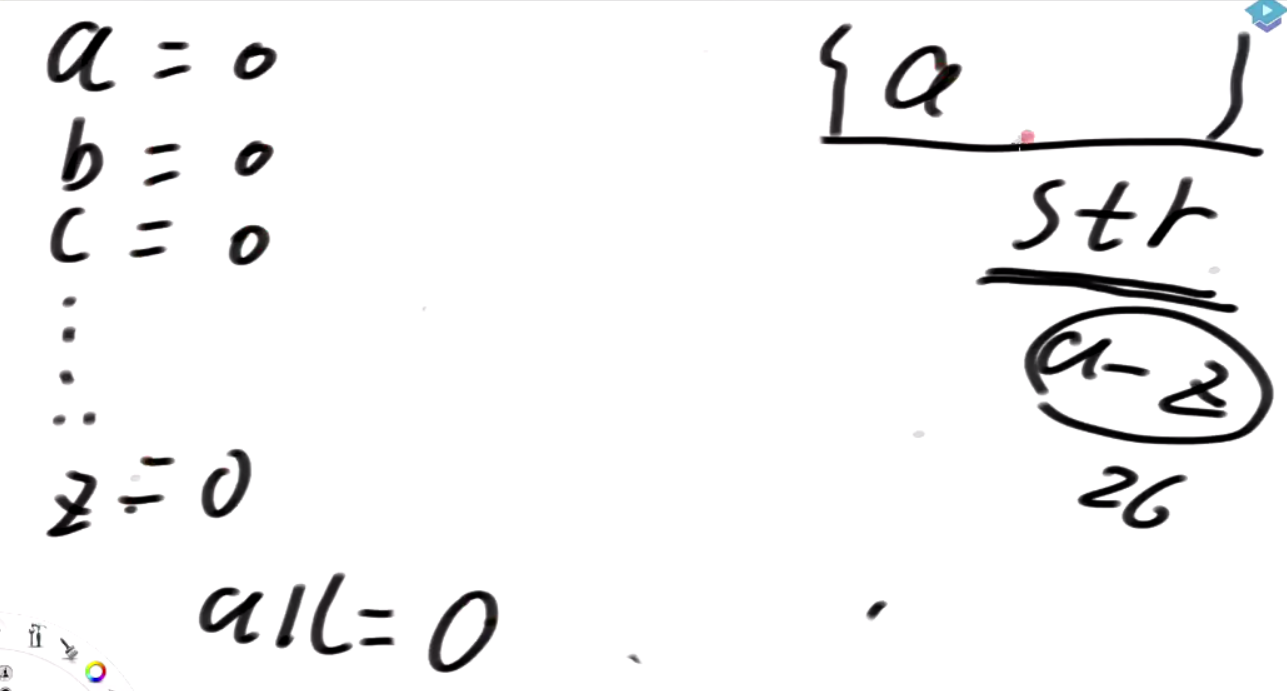 a = 0
b = 0
c = 0
z = 0
all = 0
{ a }
str
a - z
26